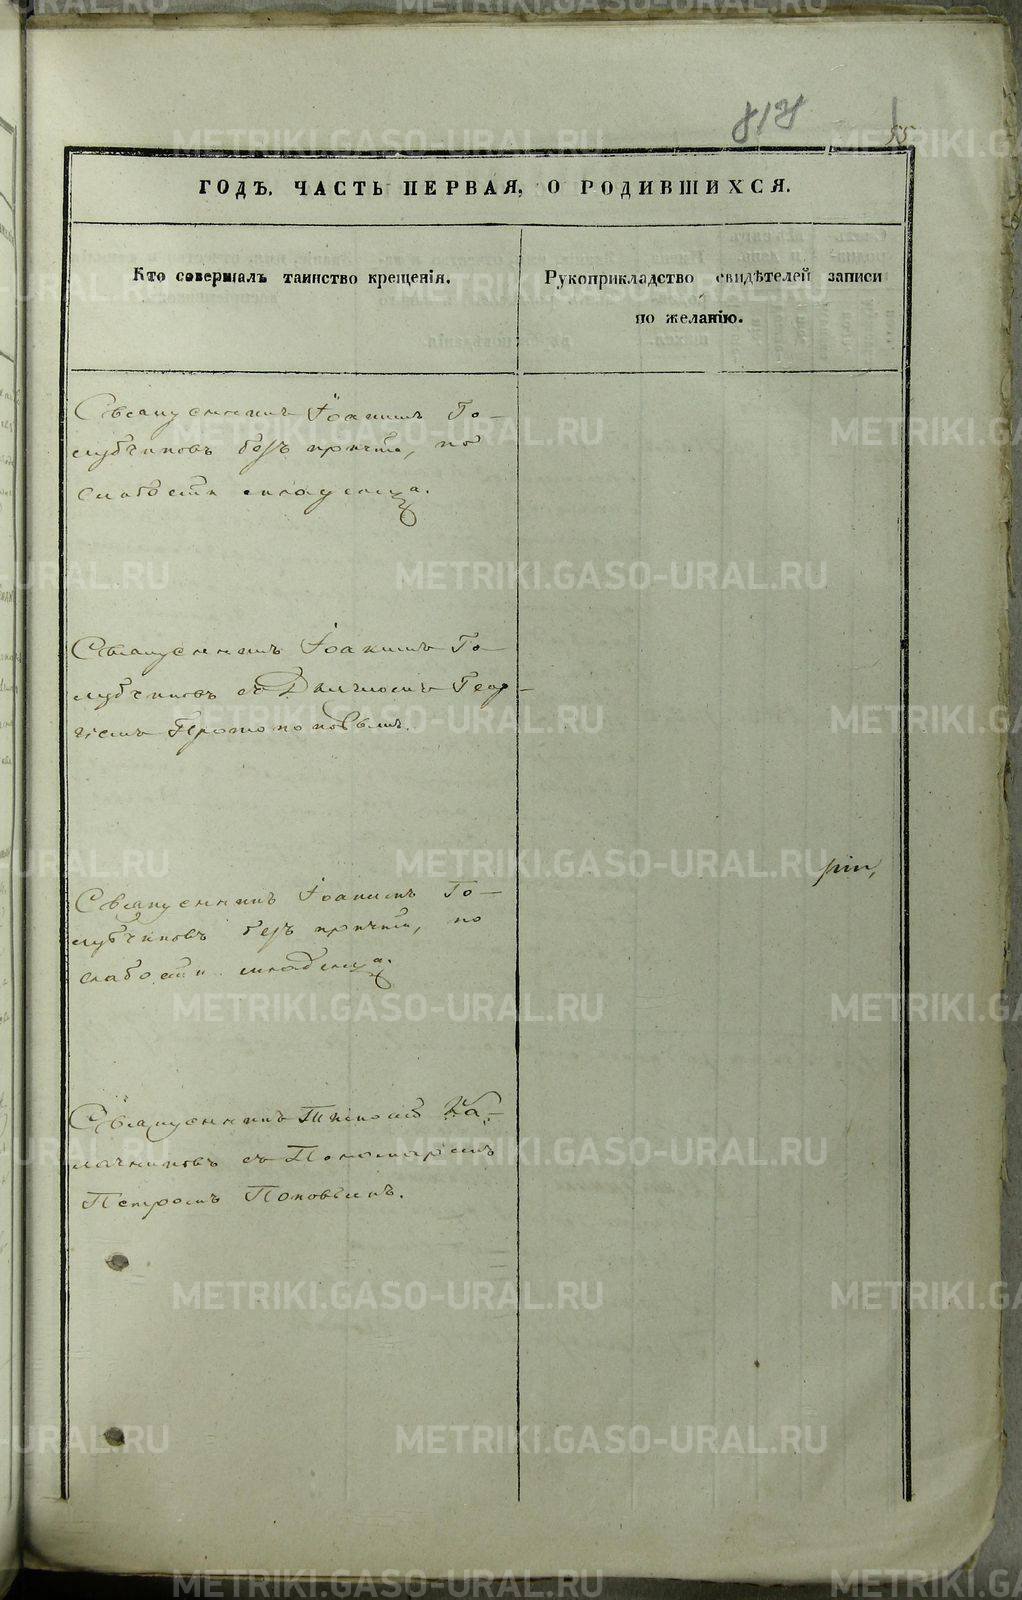 55
ГОДЪ. ЧАСТЬ ПЕРВАЯ, О РОДИВШИХСЯ.
Кто совершалъ таинство крещенія.
Рукоприкладство свидѣтелей записи
по желанію.
Священникъ Іоакимъ Го-
лубчиковъ безъ причта, по
слабости младенца.
Священникъ Іоакимъ Го-
лубчиковъ съ Дьячкомъ Геор-
гіемъ Протопоповымъ.
Священникъ Іоакимъ Го-
лубчиковъ безъ причта, по
слабости младенца.
Священникъ Ка-
лачниковъ съ Пономаремъ
Петромъ Поповымъ.
METRIKI.GASO-URAL.RU